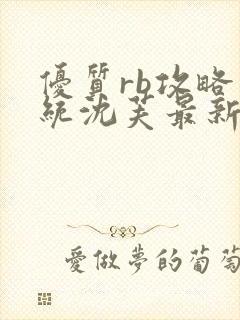 優質rb攻略
統沈芙最新
愛做夢的葡萄